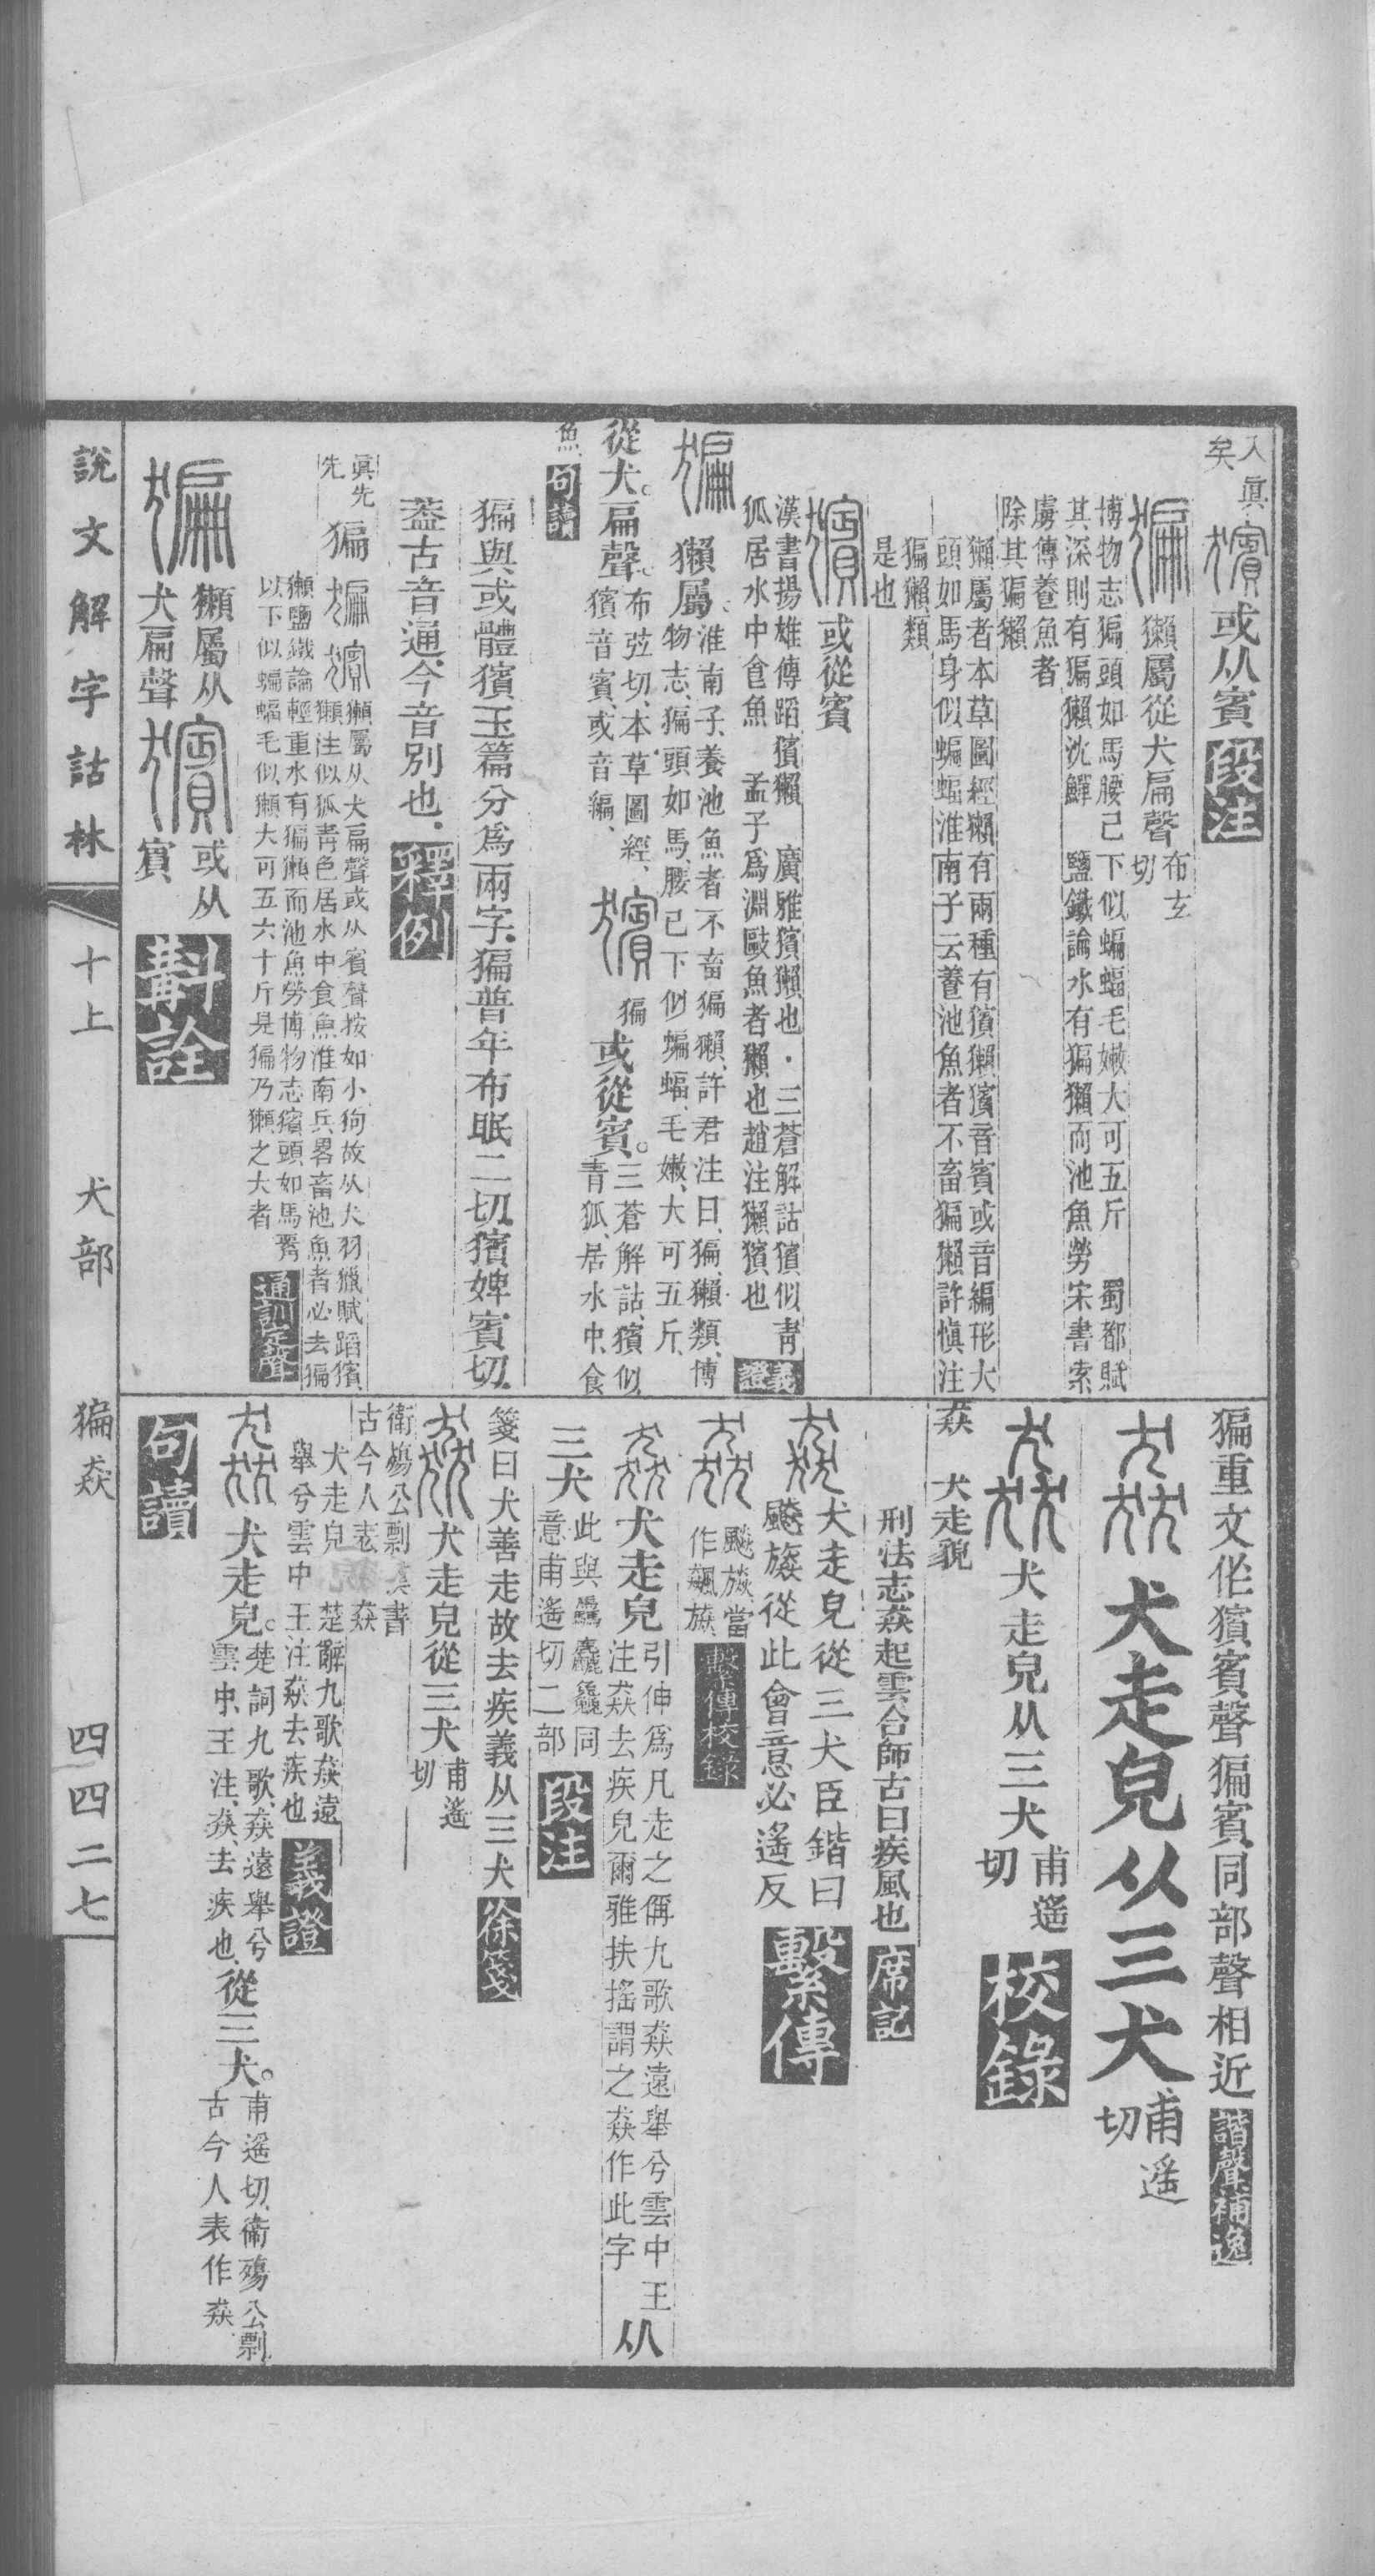 入眞
矣
獱或从賓段注
猵獺屬從犬扁聲布玄
切
博物志猵頭如馬腰已下似蝙蝠毛嫩大可五斤 蜀都賦
其深則有猵獺沈鱓 鹽鐵論水有猵獺而池魚勞宋書索
虜傳養魚者
除其猵獺
獺屬者本草圖經獺有兩種有獱獺獱音賓或音編形大
頭如馬身似蝙蝠淮南子云養池魚者不畜猵獺許愼注
猵獺類
是也
獱或從賓
漢書揚雄傳蹈獱獺 廣雅獱獺也·三蒼解詁獱似靑
狐居水中食魚 孟子爲淵敺魚者獺也趙注獺獱也義證
猵獺屬、淮南子、養池魚者不畜猵獺、許君注曰、猵、獺類、博
物志、猵頭如馬、腰已下似蝙蝠、毛嫩、大可五斤、
從犬。扁聲。布弦切、本草圖經、
獱音賓、或音編、
獱猵或從賓。三蒼解詁、獱似
青狐、居水中、食
魚、句讀
猵與或體獱、玉篇分爲兩字、猵普年布眠二切、獱婢賓切、
葢古音通、今音別也、釋例
眞先
先
猵猵獱獺屬从犬扁聲或从賓聲按如小狗故从犬羽獵賦蹈獱
獺注似狐靑色居水中食魚淮南兵畧畜池魚者必去猵
獺鹽鐵論輕重水有猵獺而池魚勞博物志獱頭如馬腎
以下似蝙蝠毛似獺大可五六十斤是猵乃獺之大者通訓定聲
猵獺屬从
犬扁聲獱或从
賓斠詮
猵重文作獱賓聲猵賓同部聲相近諧聲補逸
猋犬走皃从三犬甫遙
切
猋犬走皃从三犬甫遙
切校錄
猋 犬走貌
刑法志猋起雲合師古曰疾風也席記
猋犬走皃從三犬臣鍇曰
飈㷠從此會意必遙反繫傳
猋飈㷠當
作飆㷠繫傳校錄
猋犬走皃引伸爲凡走之偁九歌猋遠舉兮雲中王
注猋去疾皃爾雅扶搖謂之猋作此字从
三犬此與驫麤鱻同
意甫遙切二部段注
箋曰犬善走故去疾義从三犬徐箋
猋犬走皃從三犬甫遙
切
衛殤公剽漢書
古今人表作猋
犬走皃 楚辭九歌猋遠
舉兮雲中王注猋去疾也義證
猋犬走皃。楚詞九歌、猋遠舉兮
雲中、王注、猋、去疾也、從三犬。甫遙切、衛殤公剽、
古今人表作猋、
句讀
說文解字詁林 十上 犬部 猵猋 四四二七